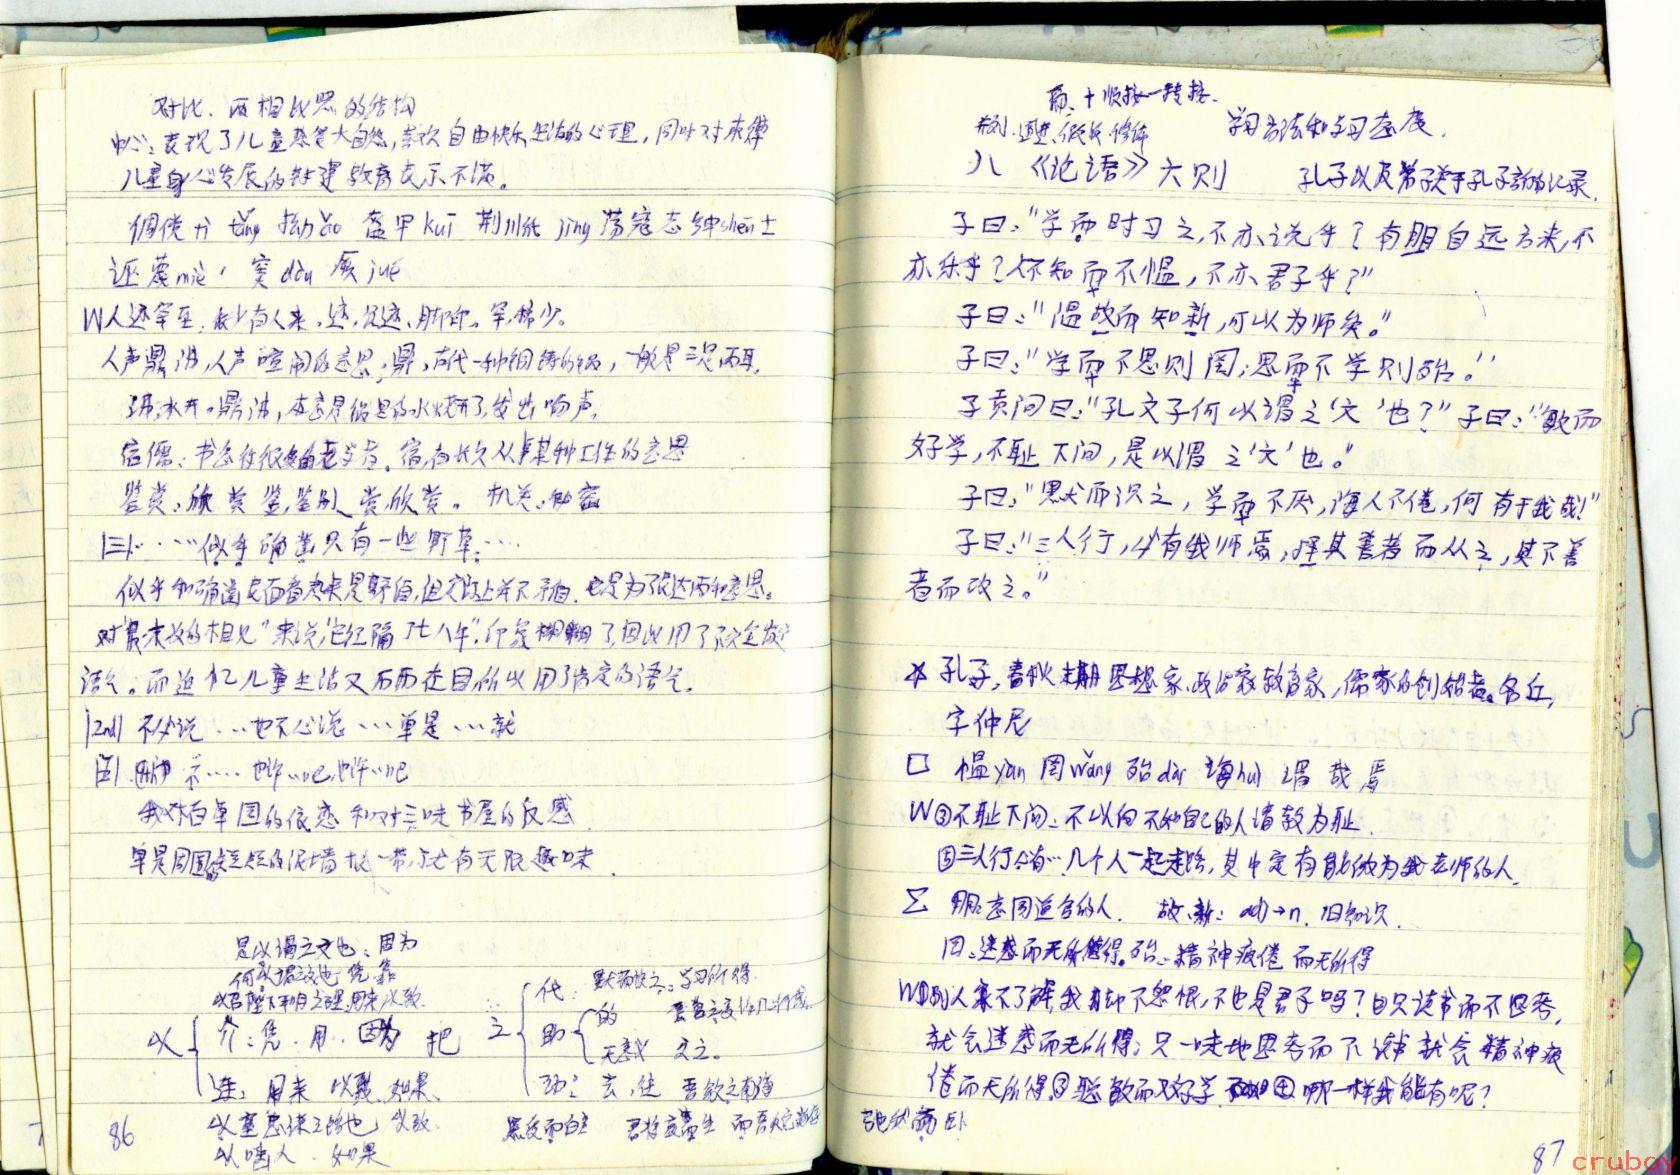 对比、两相比照的结构
中心：表现了儿童热爱大自然，喜欢自由快乐生活的心理，同时对束缚
儿童身心发展的封建教育表示不满。
倜傥 tì tǎng 拗 ǎo 盔甲 kuī 荆川纸 jīng 荡寇志 绅 shēn 士
蔑 miè 窦 dòu 厥 jué
W人迹罕至：很少有人来，迹，足迹、脚印。罕，稀少。
人声鼎沸，人声喧闹的意思；鼎，古代一种铜铸的锅，一般是三足两耳。
沸，水开。鼎沸，本意是锅里的水烧开了，发出响声。
宿儒：书念得很多的老学者。宿，有长久从事某种工作的意思
鉴赏：欣赏 鉴，鉴别 赏，欣赏。 机关：秘密
|三|……似乎确凿只有一些野草；……
似乎和确凿表面看起来是矛盾，但实际上并不矛盾。也是为了表达两种意思。
对"最末次的相见"来说，"已经隔了七八年"，印象模糊了因此用了不定
语气。而追忆儿童生活又历历在目，所以用了肯定的语气。
|2nd| 不必说…也不必说…单是…就
也许…吧，也许…吧
我对百草园的依恋和对三味书屋的反感
单是周围短短的泥墙根一带，就有无限趣味
是以谓之文也：因为
何以谓之文也 凭、靠
以 介：凭、用、因为 把
连：用来 以致、如果、
以塞忠谏之路也 以致
如果
之 代： 学习所得
助 的
无意义 久之。
动：去，往 吾欲之南海
86
而、+ 顺接一转接
并列、递进、假设、修饰
学习方法和学习态度
八 《论语》六则 孔子以及弟子关于孔子言行的记录
子曰："学而时习之，不亦说乎？有朋自远方来，不
亦乐乎？人不知而不愠，不亦君子乎？"
子曰："温故而知新，可以为师矣。"
子曰："学而不思则罔；思而不学则殆。"
子贡问曰："孔文子何以谓之'文'也？"子曰："敏而
好学，不耻下问，是以谓之'文'也。"
子曰："默而识之，学而不厌，诲人不倦，何有于我哉！"
子曰："三人行，必有我师焉，择其善者而从之，其不善
者而改之。"
孔子，春秋末期思想家、政治家、教育家，儒家的创始者。名丘，
字仲尼
口 愠 yùn 罔 wǎng 殆 dài 诲 huì 谓 哉 焉
W③不耻下问：不以向不如自己的人请教为耻
⑤三人行必有… 几个人一起走路，其中定有能做为我老师的人
Σ 朋：志同道合的人 故、新：adj→n. 旧知识
罔：迷惑而无所得。殆：精神疲倦而无所得
W①别人家不了解，我却不怨恨，不也是君子吗？②只读书而不思考，
就会迷惑而无所得；只一味地思考而不读书就会精神疲
倦而无所得③聪敏而又好学 ④哪一样我能有呢？
87
cruboy